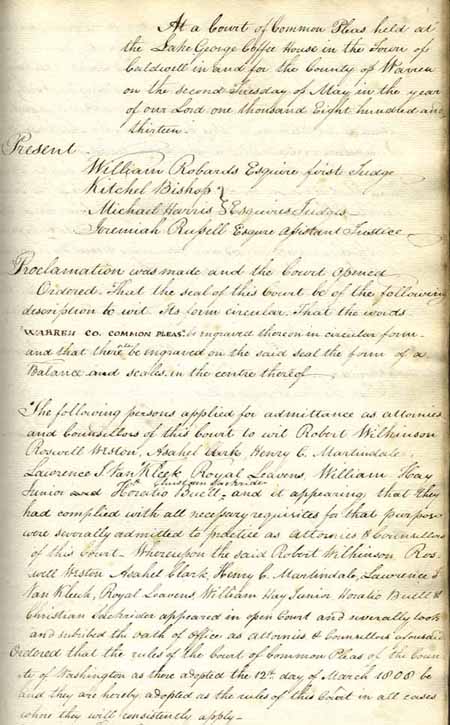 At a Court of Common Pleas held at
the Lake George Coffee House in the Town of
Caldwell in and for the County of Warren
on the second Tuesday of May in the year
of our Lord one thousand Eight hundred and
thirteen.
Present
William Robards Esquire first Judge
Kitchel Bishop }
Michael Harris } Esquires Judges
Jeremiah Russell Esquire assistant Justice
Proclamation was made and the Court opened
Ordered. That the seal of this Court be of the following
description to wit. Its form circular. That the words
WARREN CO. COMMON PLEAS. be ingraved thereon in circular form
and that there be engraved on the said seal the form of a
Balance and scales in the centre thereof
The following persons applied for admittance as attornies
and Counsellors of this Court to wit Robert Wilkinson
Roswell Weston, Asahel Clark, Henry C. Martindale,
Lawrence J. VanKleck Royal Leavens, William Hay
Christian Sackrider
Junior and Horatio Buell, and it appearing that they
had complied with all necessary requisites for that purpose
were severally admitted to practice as attornies & Counsellors
of this Court. Whereupon the said Robert Wilkinson Ros-
well Weston Asahel Clark, Henry C. Martindale, Lawrence J.
VanKleck, Royal Leavens, William Hay Junior Horatio Buell &
Christian Sackrider appeared in open Court and severally took
and the oath of office as attornies & Counsellors aforesaid
Ordered that the rules of the Court of Common Pleas of the Coun-
ty of Washington as there adopted the 12th day of March 1808 be
and they are hereby adopted as the rules of this Court in all cases
where they will consistently apply-